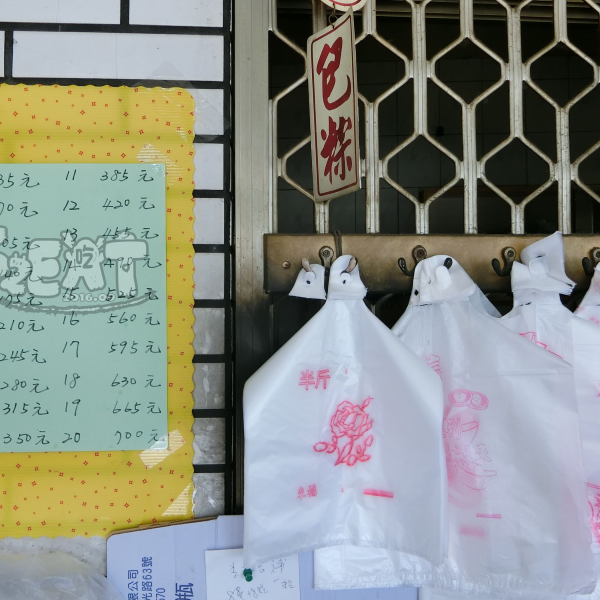 包粽
35元 11 385元
70元 12 420元
105元 13 455元
140元 14 490元
175元 15 525元
210元 16 560元
245元 17 595元
280元 18 630元
315元 19 665元
350元 20 700元
半斤
限公司
光路63號
瓶